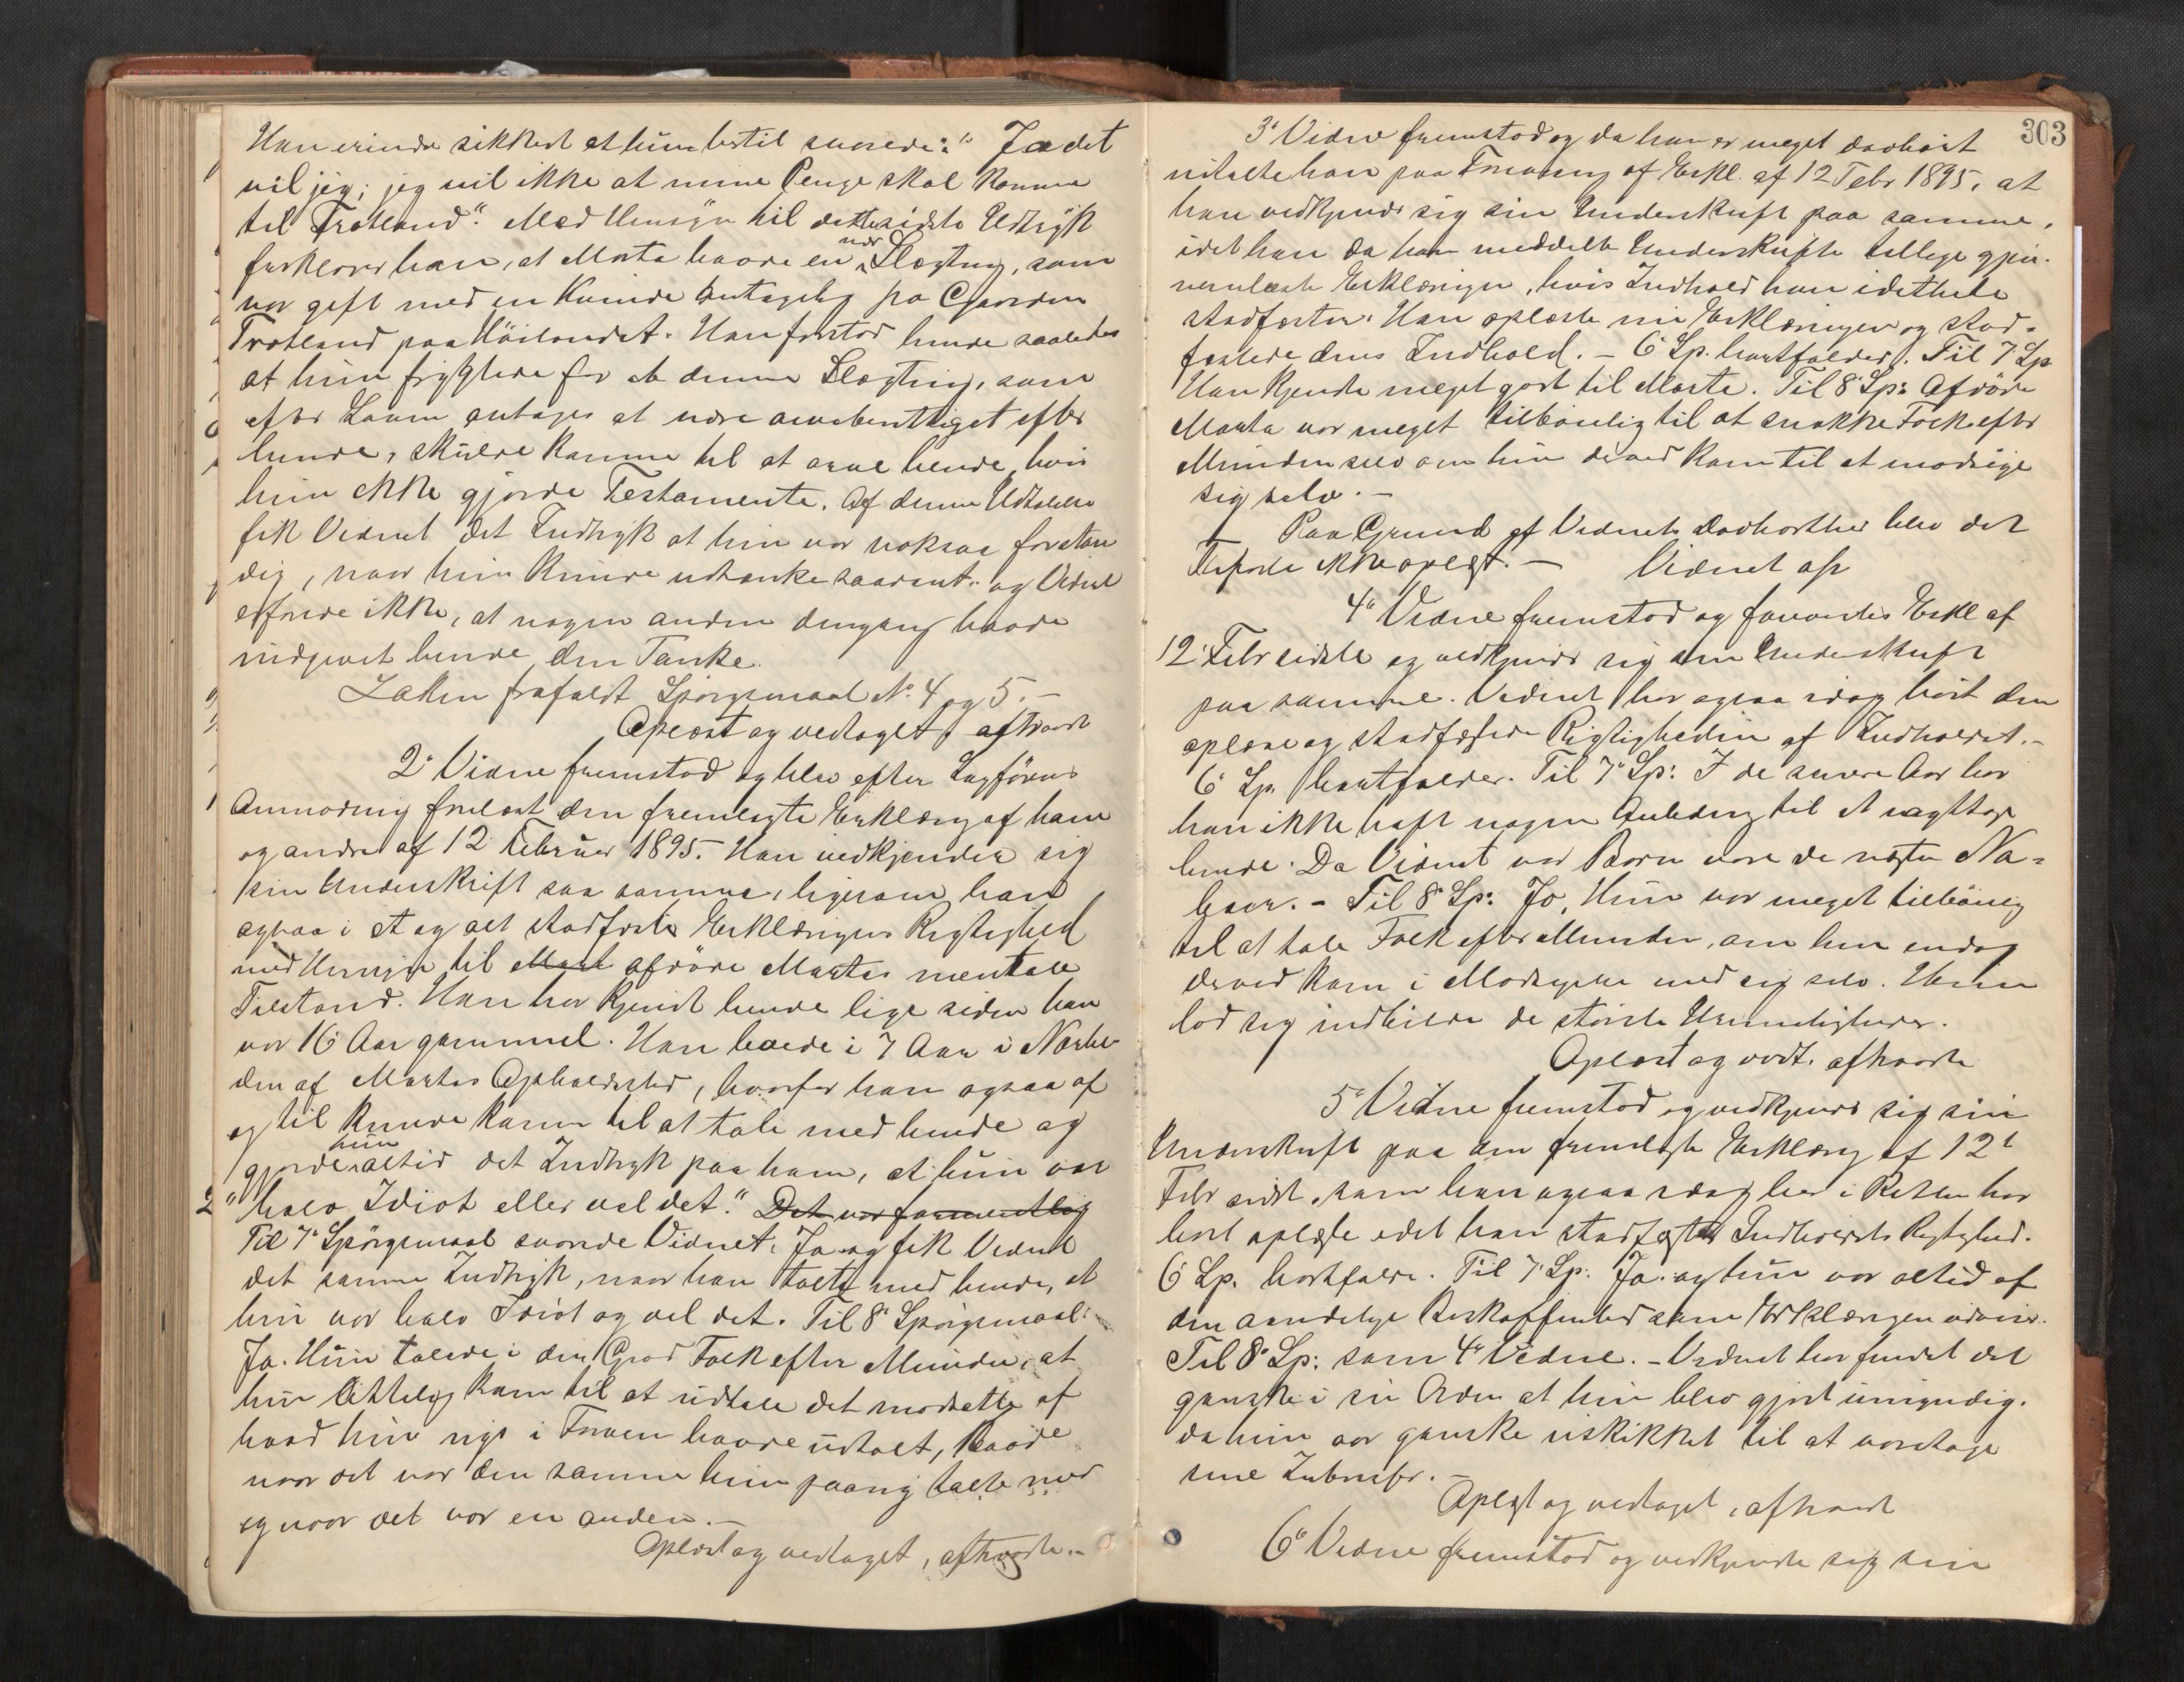 Han erindrer sikkert at hun hertil svarede: "Ja det
vil jeg; jeg vil ikke at mine Penge skal komme
til Trotland". Med Hensyn til dette sidste Udtryk
forklarer han, at Marta havde en nær Slægtning, som
var gift med en Kvinde antagelig fra Gaarden
Trotland paa Høilandet. Han forstod hende saaledes
at hun frygtede for at denne Slægtning, som
efter Loven antages at være arveberettiget efter
hende, skulde komme til at arve hende, hvis
hun ikke gjorde Testamente. Af denne Udtalelse
fik Vidnet det Indtryk at hun var noksaa forstan
dig, naar hun kunde udtænke saadant, og Vidnet
erfarede ikke, at nogen anden dengang havde
indgivet hende den Tanke.
Lakn frafaldt Spørgsmaal No. 4 og 5. –
Oplæst og vedtaget, aftraadt
2det Vidne fremstod og blev efter Sagførers
Anmodning forelæst den fremlagte Erklæring af ham
og andre af 12 Februar 1895. Han vedkjender sig
sin Underskrift paa samme, ligesom han
ogsaa i et og alt stadfæster Erklæringens Rigtighed
med Hensyn til Mart afdøde Martas mentale
Tilstand. Han har kjendt hende lige siden han
var 16 Aar gammel. Han boede i 7 Aar i Nærhe-
den af Martas Opholdssted, hvorfor han ogsaa af
og til kunde komme til at tale med hende og
gjorde hun altid det Indtryk paa ham, at hun var
"halv Idiot eller vel det." Det var formentlig
Til 7de Spørgsmaal svarede Vidnet: Ja og fik Vidnet
det samme Indtryk, naar han talte med hende, at
hun var halv Idiot og vel det. Til 8de Spørgsmaal:
Ja. Hun talede i den Grad Folk efter Munden, at
hun kom til at udtale det modsatte af
hvad hun nys i Forveien havde udtalt, baade
naar det var den samme hun paany talte med
og naar det var en anden. –
Oplæst og vedtaget, aftraadte. –
303
3de Vidne fremstod og da han er meget døvhørt
udtalte han paa Forevisning af Erkl. af 12 Febr 1895, at
han vedkjender sig sin Underskrift paa samme,
idet han da han meddelte Underskriften tillige gjen-
nemlæste Erklæringen, hvis Indhold han i det hele
stadfæster. Han oplæste nu Erklæringen og stad-
fæstede dens Indhold. – 6te Sp. bortfalder. Til 7 Sp
Han kjendte meget godt til Marta. Til 8de Sp: Afdøde
Marta var meget tilbøielig til at snakke Folk efter
Munden selv om hun derved kom til at modsige
sig selv. –
Paa Grund af Vidnets Døvhørthed blev det
Tilførte ikke oplæst. – Vidnet aftr
4de Vidne fremstod og forevistes Erkl af
12 Febr sidste og vedkjender sig sin Underskrift
paa samme. Vidnet har ogsaa idag hørt den
oplæse og stadfæster Rigtigheden af Indholdet. –
6te Sp. bortfalder. Til 7de Sp: I de senere Aar har
han ikke haft nogen Anledning til at iagttage
hende. Da Vidnet var Barn vare de nærmeste Na-
boer. – Til 8de Sp: Jo, Hun var meget tilbøielig
til at tale Folk efter Munden, om hun endog
derved kom i Modsigelse med sig selv. Hun
lod sig indbilde de største Urimeligheder.
Oplæst og vedt. aftraadte
5te Vidne fremstod og vedkjender sig sin
Underskrift paa den fremlagte Erklæring af 12te
Febr sidst, som han ogsaa idag her i Retten har
hørt oplæse idet han stadfæster Indholdets Rigtighed.
6te Sp. bortfalder. Til 7de Sp: Ja. og hun var altid af
den aandelige Beskaffenhed som Erklæringen udviser.
Til 8de Sp: som 4de Vidne. – Vidnet har fundet det
ganske i sin Orden at hun blev gjort umyndig.
da hun var ganske uskikket til at varetage
sine Interesser. –
Oplæst og vedtaget, aftraadt
6te Vidne fremstod og vedkjendte sig sin